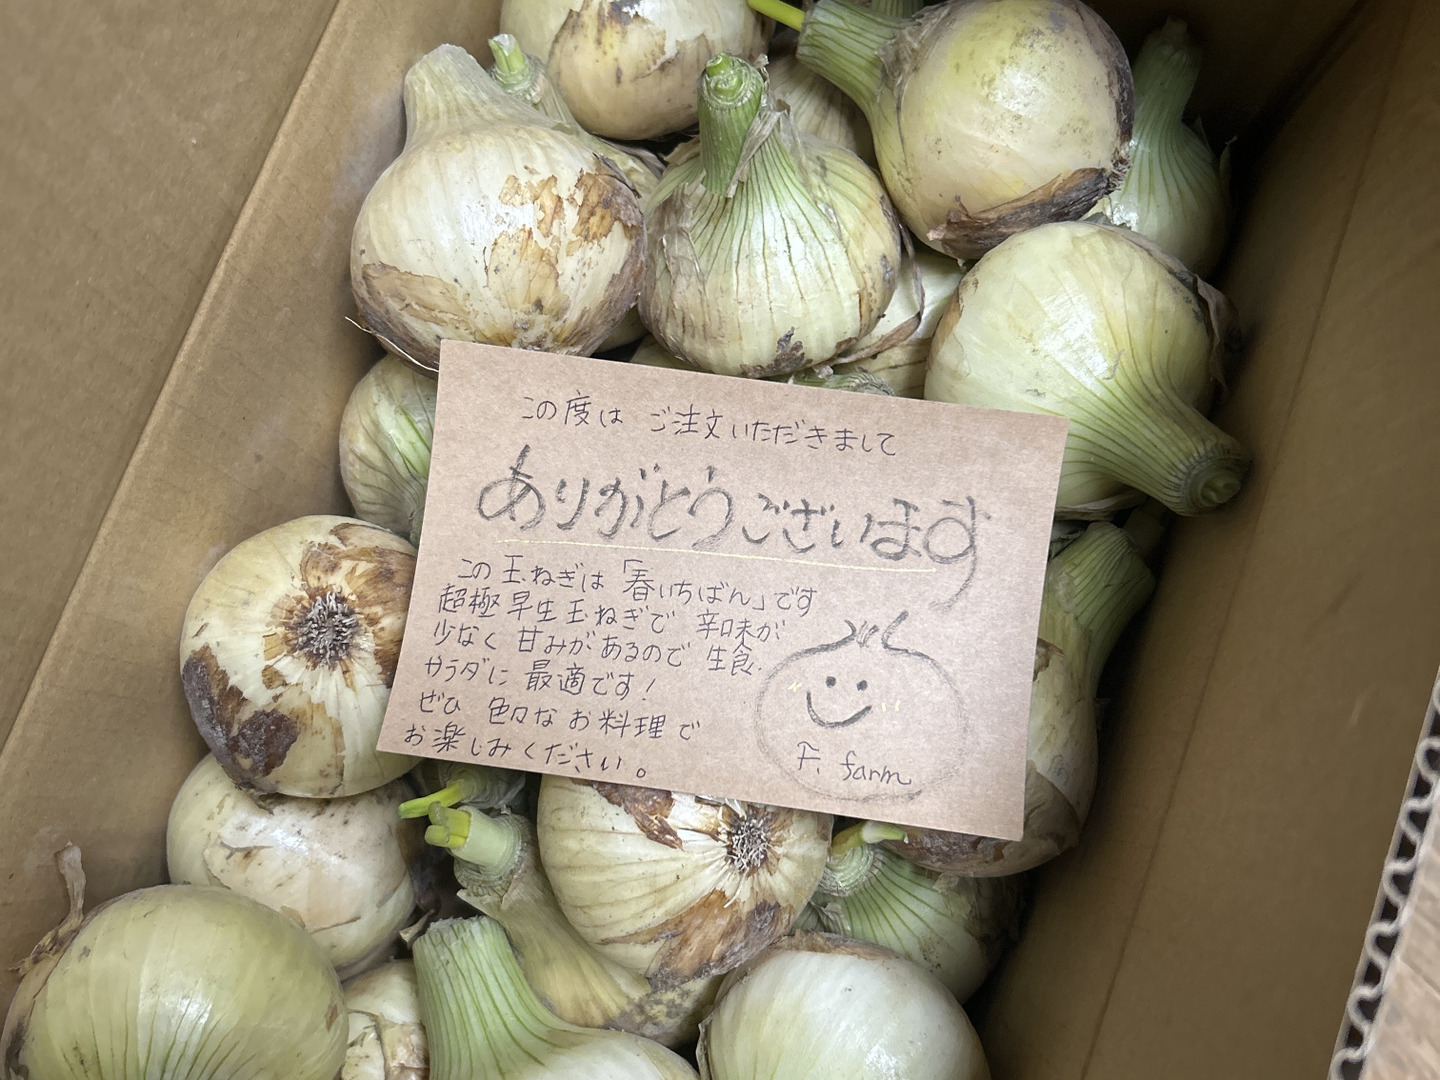 この度は ご注文いただきまして
ありがとうございます
この玉ねぎは「春いちばん」です
超極早生玉ねぎで 辛味が
少なく 甘みがあるので 生食.
サラダに 最適です!
ぜひ 色々なお料理で
お楽しみください。
F. farm